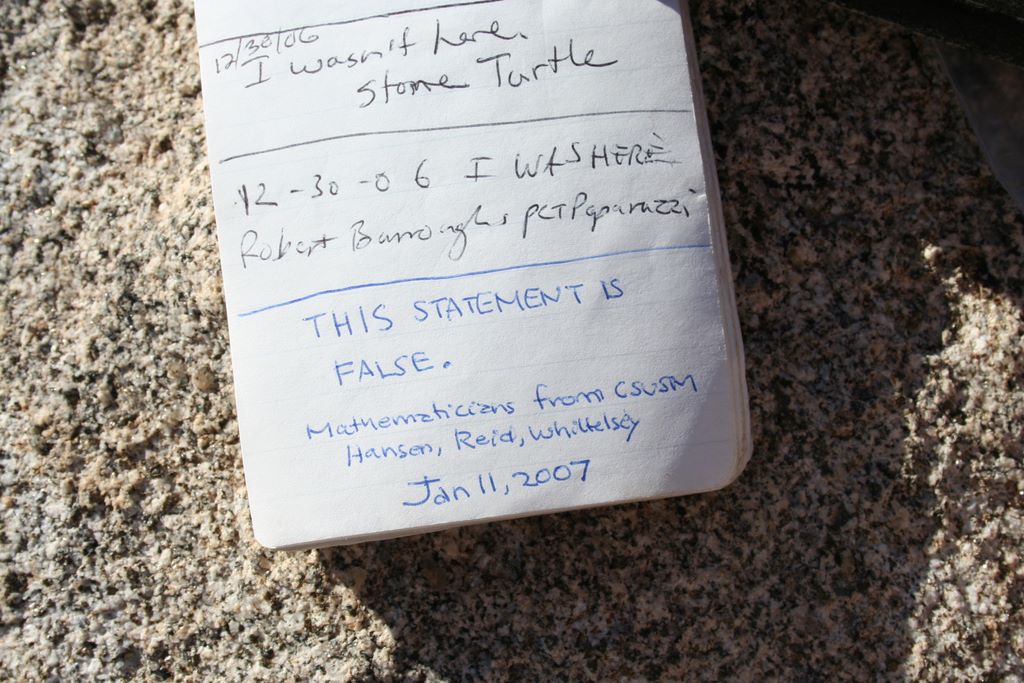 12/30/06
I wasn't here.
Stone Turtle
12-30-06 I WAS HERE
Robert Burroughs PCTPaparazzi
THIS STATEMENT IS
FALSE.
Mathematicians from CSUSM
Hansen, Reid, Whittelsey
Jan 11, 2007